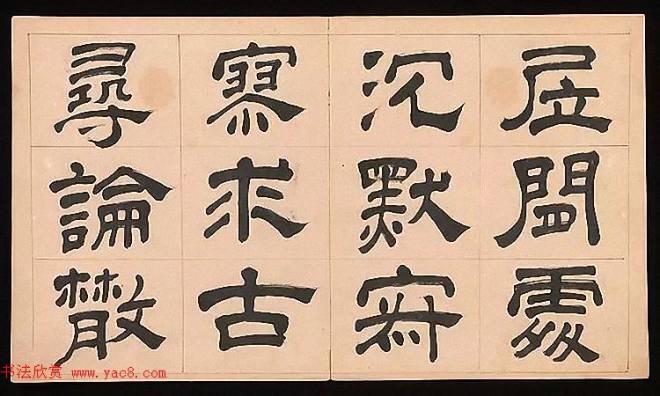 居閒處
沉默寂
寥求古
尋論散
书法欣赏 www.yac8.com